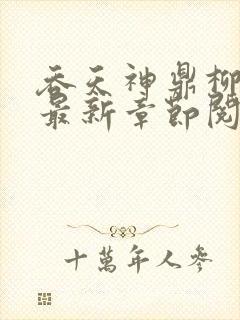 吞天神鼎柳
最新章節閱
十萬年人參